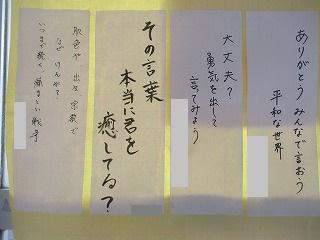 ありがとう みんなで言おう
平和な世界
大丈夫?
勇気を出して
言ってみよう
その言葉
本当に君を
癒してる?
肌色や 宗教で
なぜ
いつまで続く 戦争